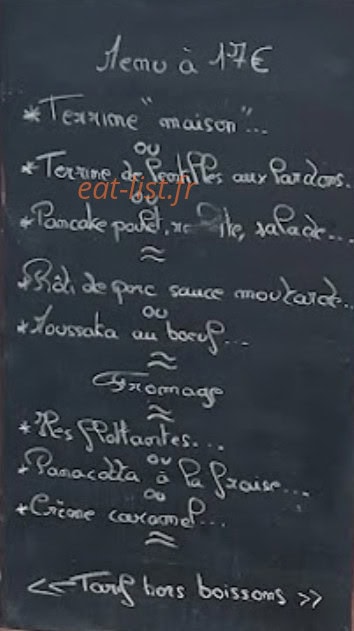 Menu à 17€
*Terrine "maison"...
ou
*Terrine de lentilles aux lardons.
eat-list.fr
ou
*Pancake poulet, salade...
≈
*Rôti de porc sauce moutarde..
ou
*Moussaka au boeuf...
≈
Fromage
≈
*Iles flottantes...
ou
*Panacotta à la fraise...
ou
*Crème caramel...
≈
<<-Tarif hors boissons >>